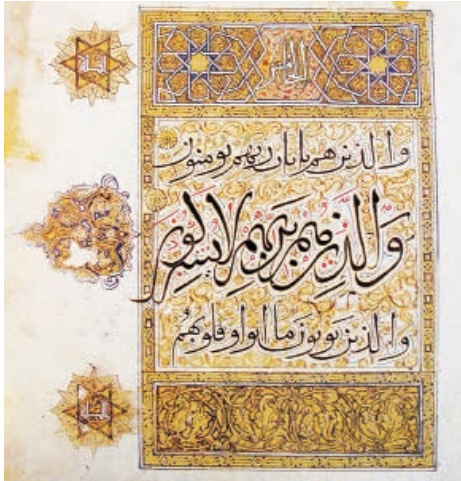 والذين هم بايات ربهم يومنون
والذين هم بربهم لا يشركون
والذين يوتون ما اتوا وقلوبهم